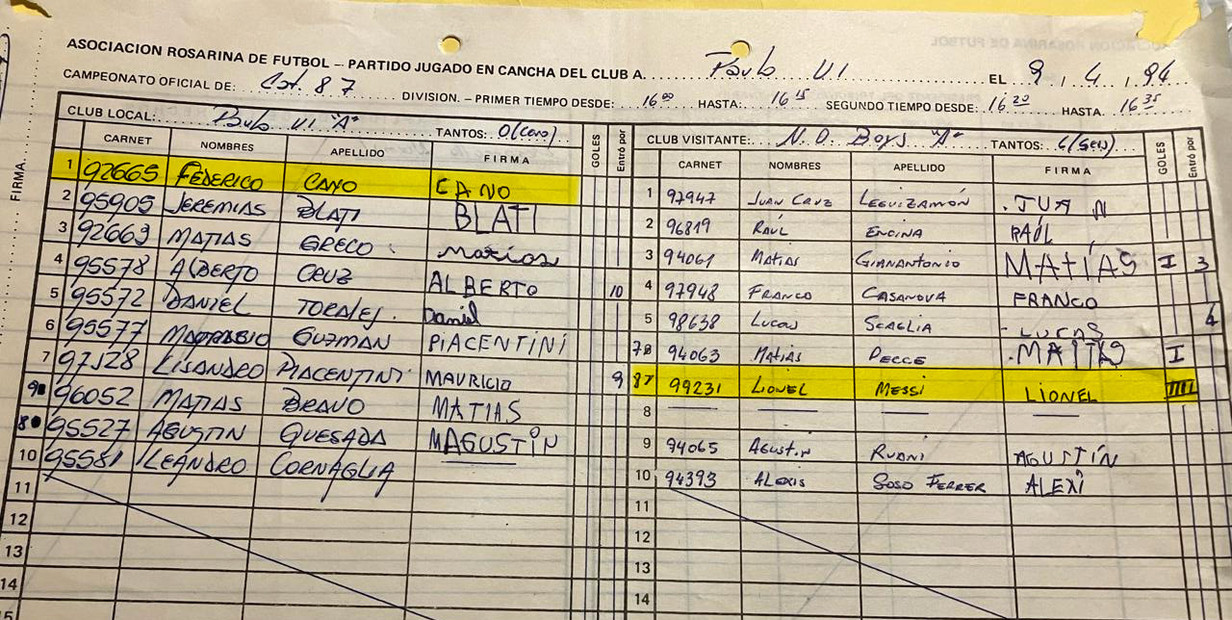 ASOCIACION ROSARINA DE FUTBOL – PARTIDO JUGADO EN CANCHA DEL CLUB A. Paulo VI EL 9 . 4 . 94
CAMPEONATO OFICIAL DE: Cat. 87 DIVISION. – PRIMER TIEMPO DESDE: 16 00 HASTA: 16 15 SEGUNDO TIEMPO DESDE: 16 20 HASTA. 16 35
FIRMA
CLUB LOCAL: Paulo VI "A" TANTOS: 0 (Cero) GOLES Entró por
CARNET NOMBRES APELLIDO FIRMA
1 92665 FEDERICO CANO CANO
2 95905 JEREMIAS BLATI BLATI
3 92663 MATIAS GRECO
4 95578 ALBERTO CRUZ ALBERTO
5 95572 DANIEL TORALES. Daniel 10
6 95577 GUZMAN PIACENTINI
7 97328 LISANDRO PIACENTINI MAURICIO 9
96052 MATIAS BRAVO MATIAS
95527 AGUSTIN QUESADA MAGUSTIN
10 95581 LEANDRO CORNAGLIA
11
12
13
14
15
CLUB VISITANTE: N. O. Boys "A" TANTOS: 6 (Seis) GOLES Entró por
CARNET NOMBRES APELLIDO FIRMA
1 97947 JUAN CRUZ LEGUIZAMÓN JUAN
2 96819 RAÚL ENCINA RAÚL
3 94061 MATIAS GIANANTONIO MATÍAS I 3
4 97948 FRANCO CASANOVA FRANCO
5 98638 LUCAS SCAGLIA LUCAS 4
94063 MATIAS PECCE MATÍAS I
99231 LIONEL MESSI LIONEL IIII
8
9 94065 AGUSTIN RUANI AGUSTÍN
10 94393 ALEXIS SOSO FERRER ALEXI
11
12
13
14